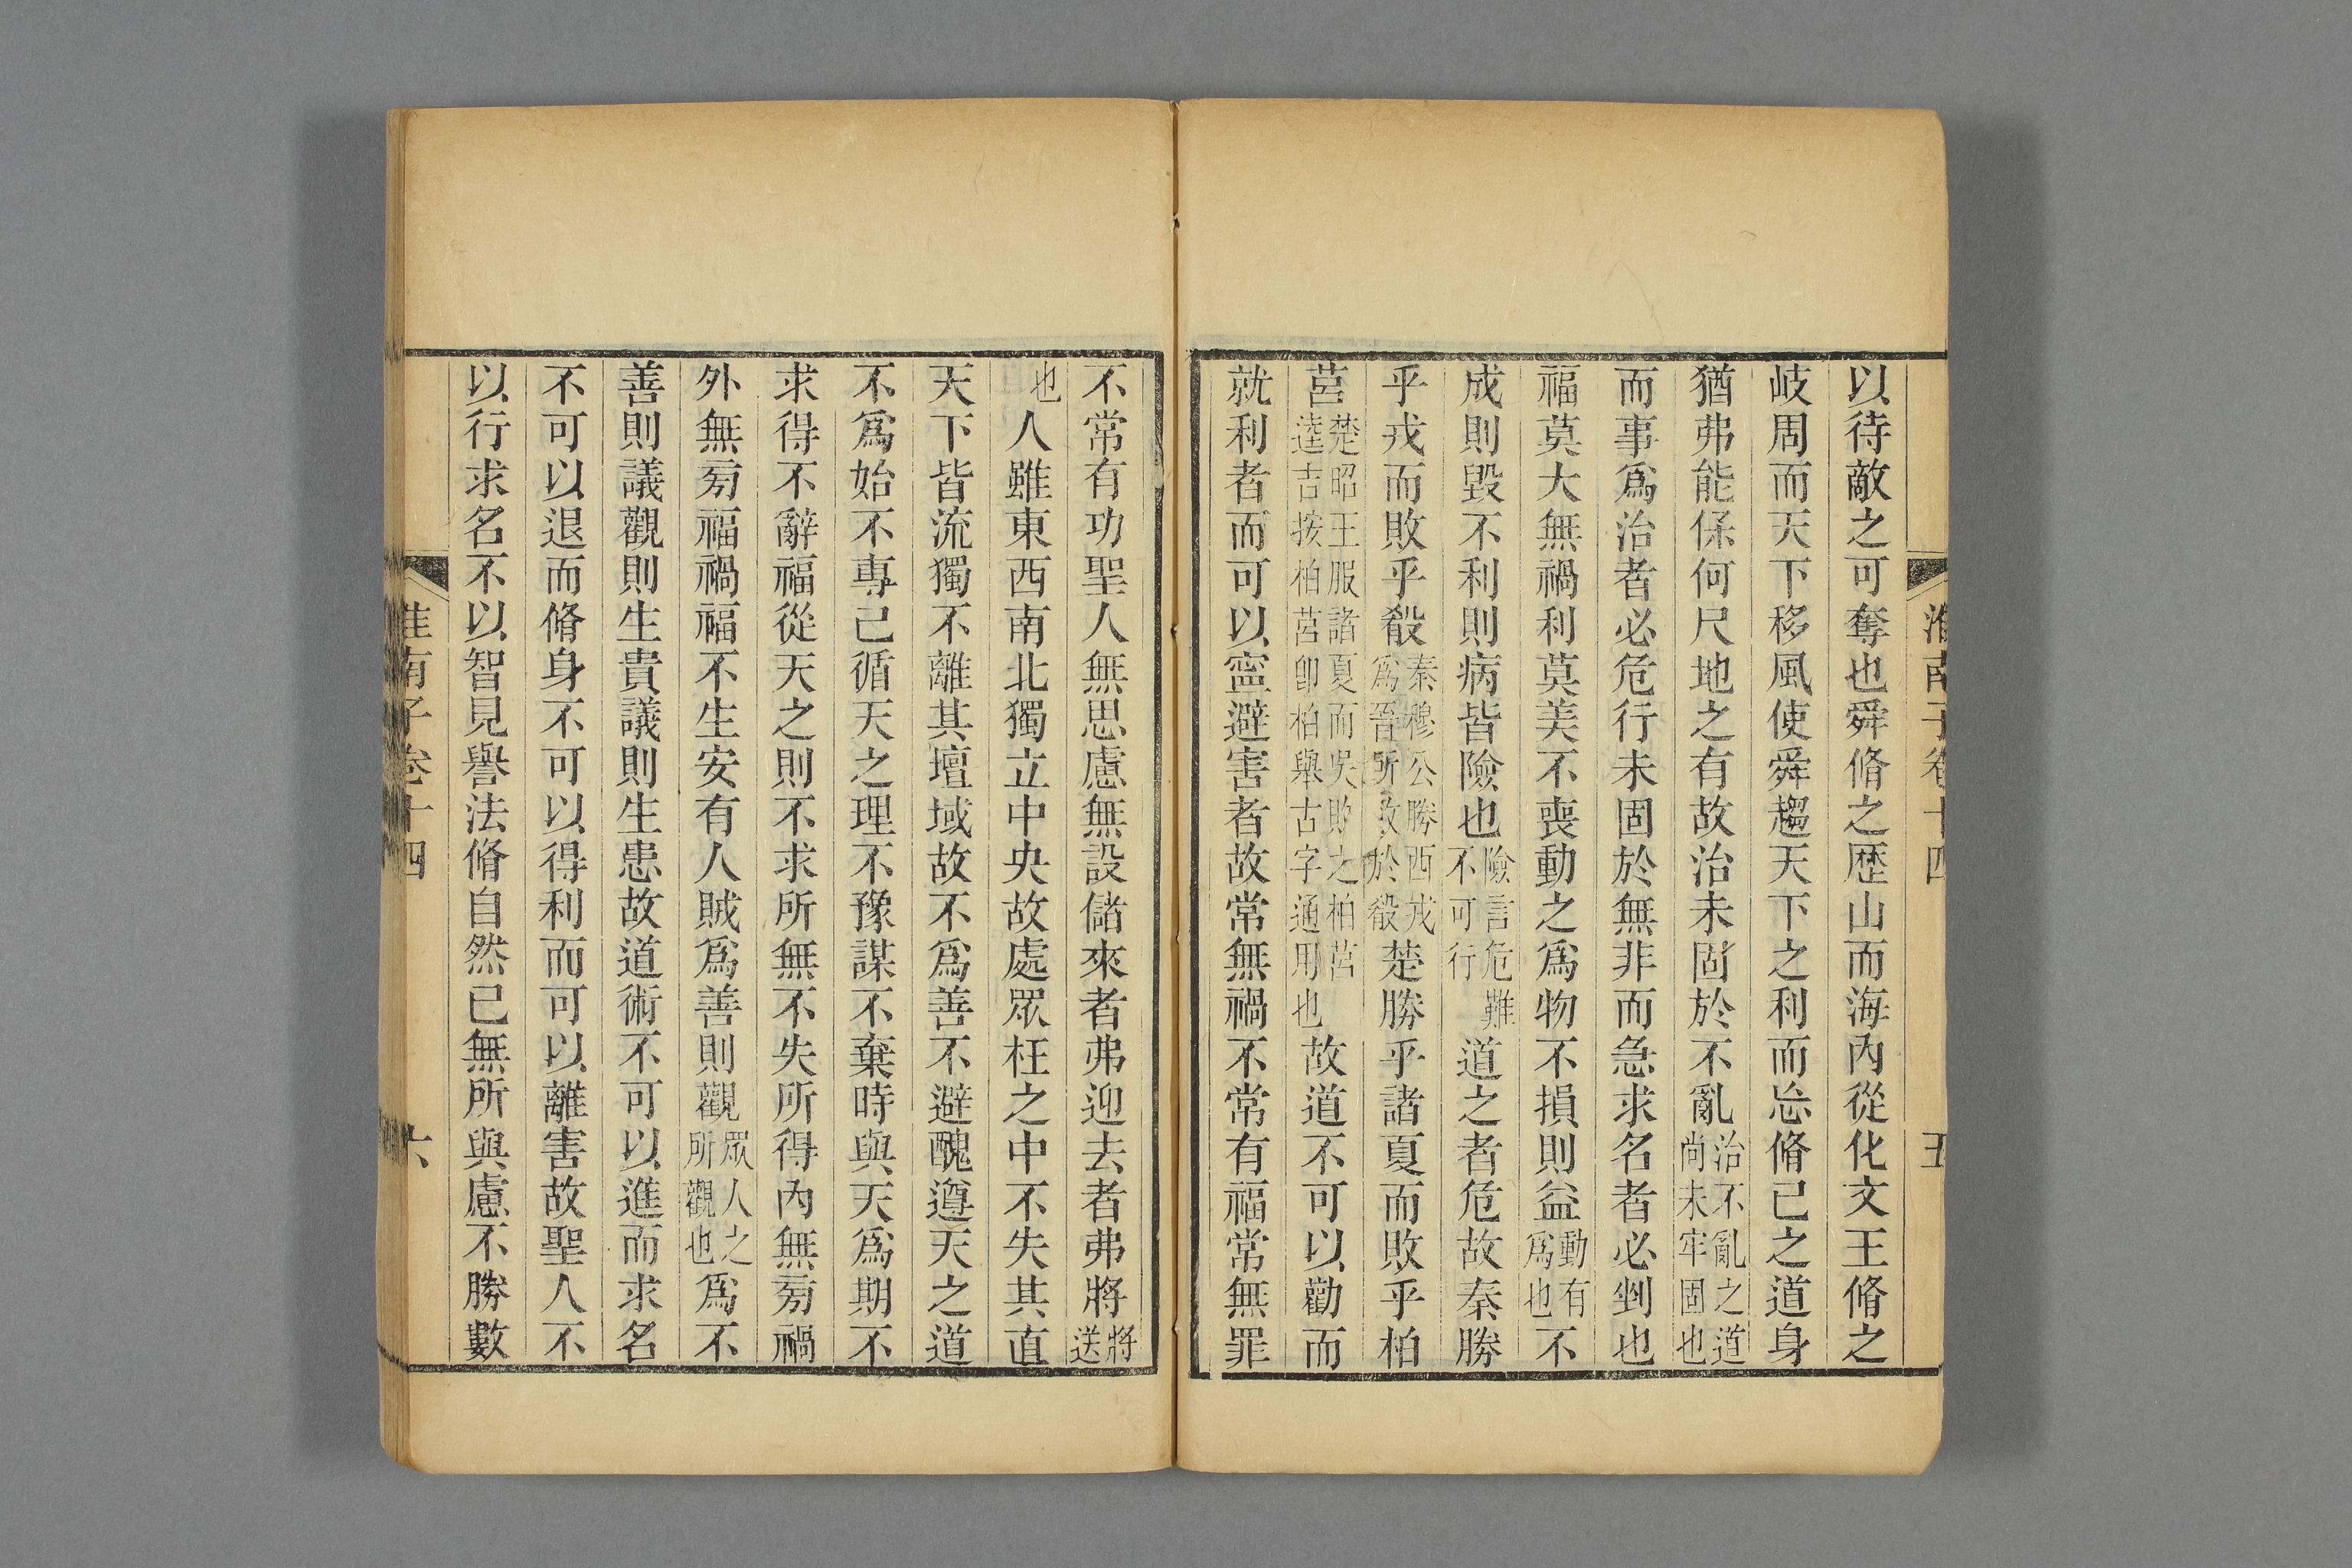 淮南子卷十四 五
以待敵之可奪也舜脩之歴山而海內從化文王脩之
岐周而天下移風使舜趨天下之利而忘脩己之道身
猶弗能保何尺地之有故治未固於不亂治不亂之道尚未牢固也
而事爲治者必危行未固於無非而急求名者必剉也
福莫大無禍利莫美不喪動之爲物不損則益動有爲也不
成則毀不利則病皆險也險言危難不可行道之者危故秦勝
乎戎而敗乎殽秦穆公勝西戎爲晉所敗於殽楚勝乎諸夏而敗乎柏
莒楚昭王服諸夏而吳敗之柏莒逵吉按柏莒卽柏舉古字通用也故道不可以勸而
就利者而可以寧避害者故常無禍不常有福常無罪
不常有功聖人無思慮無設儲來者弗迎去者弗將將送
也人雖東西南北獨立中央故處眾枉之中不失其直
天下皆流獨不離其壇域故不爲善不避醜遵天之道
不爲始不專己循天之理不豫謀不棄時與天爲期不
求得不辭福從天之則不求所無不失所得內無旁禍
外無旁福禍福不生安有人賊爲善則觀眾人之所觀也爲不
善則議觀則生貴議則生患故道術不可以進而求名
不可以退而脩身不可以得利而可以離害故聖人不
以行求名不以智見譽法脩自然已無所與慮不勝數
淮南子卷十四 六